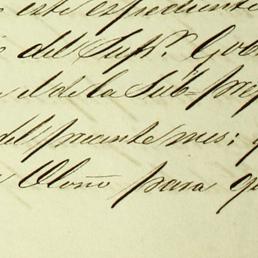 este expediente
del Supr. Gob
el de la Sub-pre
del presente mes;
Otoño para q